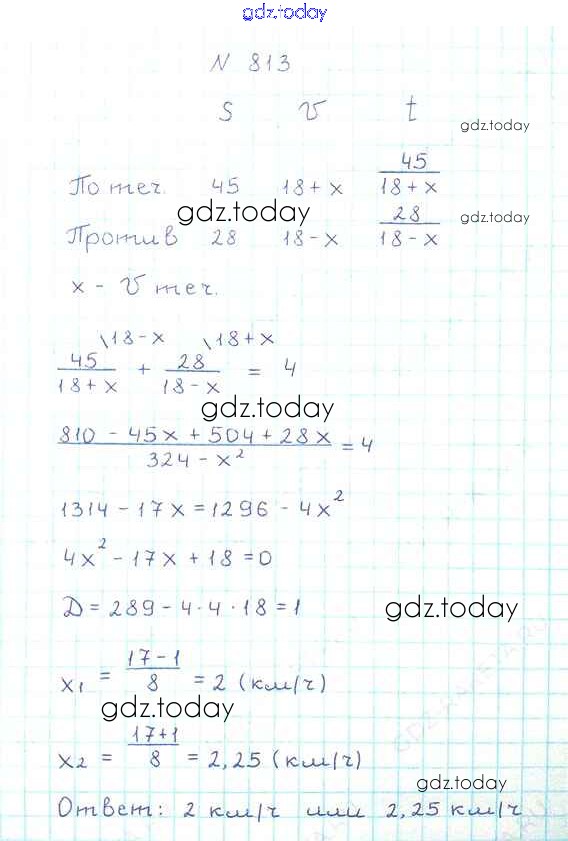 gdz.today
N 813
S V t
gdz.today
По теч. 45 18+x 45/(18+x)
gdz.today
Против 28 18-x 28/(18-x)
gdz.today
x - V теч.
45/(18+x) \18-x + 28/(18-x) \18+x = 4
gdz.today
(810 - 45x + 504 + 28x)/(324 - x²) = 4
1314 - 17x = 1296 - 4x²
4x² - 17x + 18 = 0
D = 289 - 4·4·18 = 1
gdz.today
x₁ = (17-1)/8 = 2 (км/ч)
gdz.today
x₂ = (17+1)/8 = 2,25 (км/ч)
gdz.today
Ответ: 2 км/ч или 2,25 км/ч